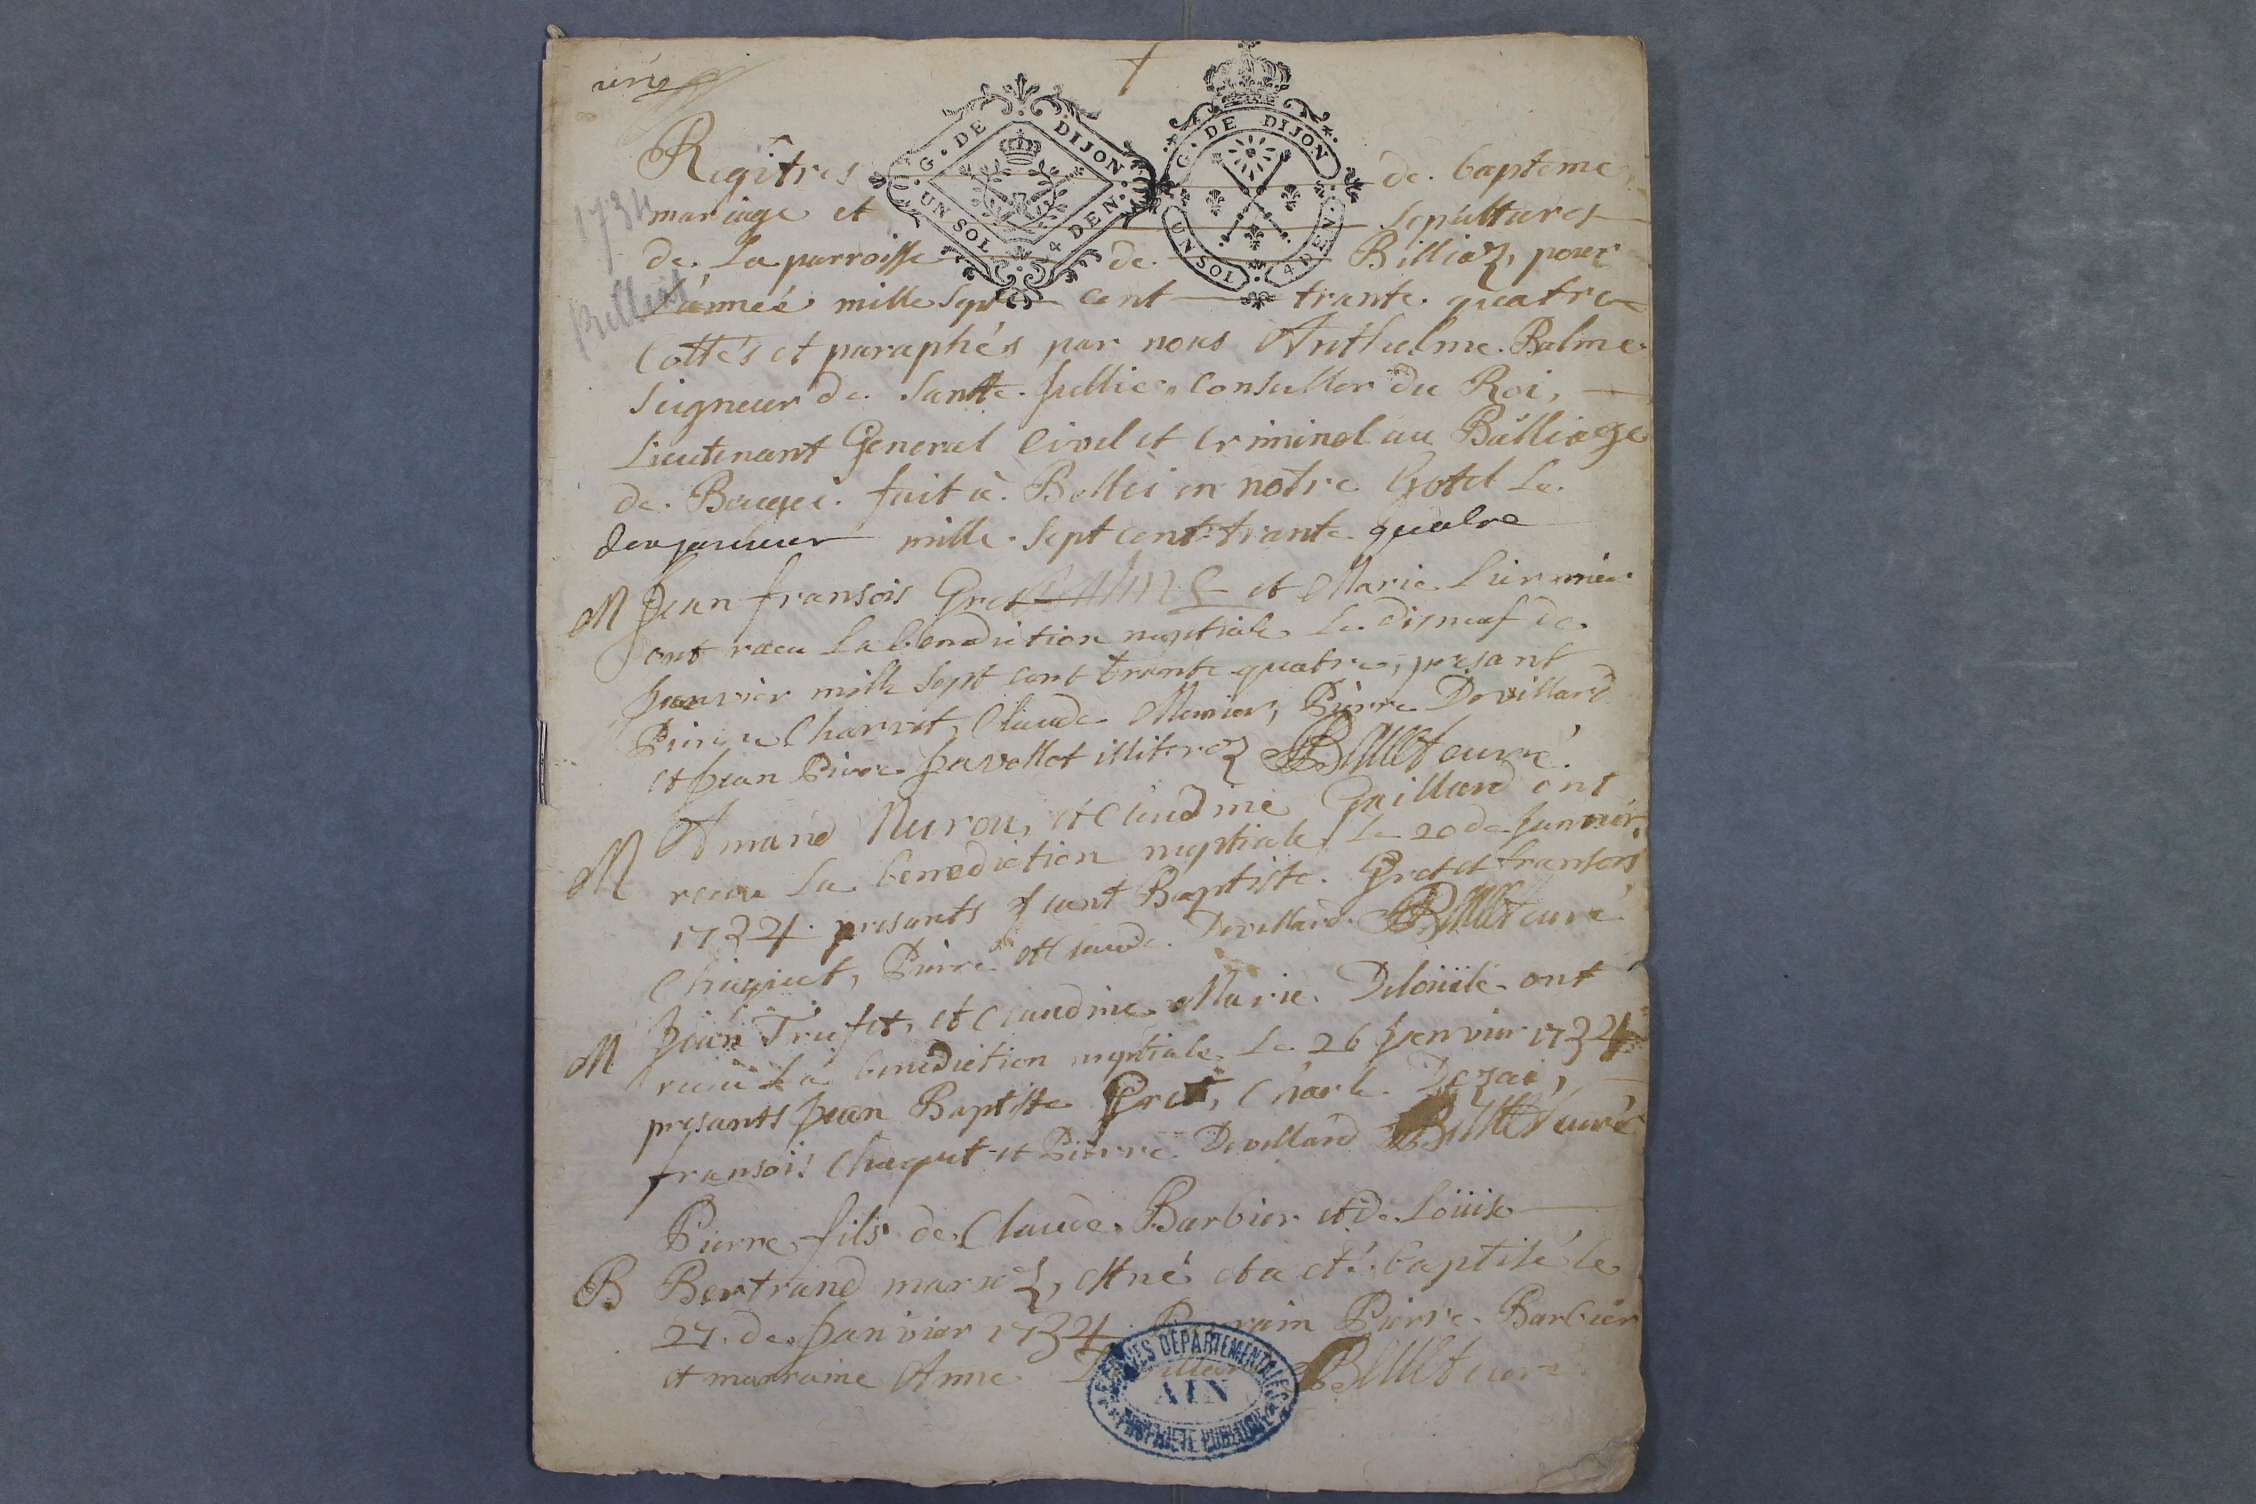 G. DE DIJON
UN SOL 4 DEN.
G. DE DIJON
UN SOL 4 DEN.
1734
Billiat
Regîtres de bapteme
mariage et sepultures
de la parroisse de Billiaz, pour
l'année mille sept cent trante quatre
Cottés et paraphés par nous Anthelme Balme
Seigneur de Sante Jullie, Consullier du Roi,
Lieutenant General Civil et Criminel au Bailliage
de Beugei. fait à Bellei en notre hotel le
deux janvier mille sept cent trante quatre
M Jean fransois Gros et Marie
ont recu la benediction nuptiale le disneuf de
Janvier mille sept cent trante quatre, presant
Pierre Charvet, Claude Munier, Pierre Devillard
et Jean Pierre Javellot illiterez Billlet curé.
M Amand Nurou, et Claudine Gaillard ont
receu la benediction nuptiale le 20 de Janvier
1734. presants Jeant Baptiste Gret et fransois
Chaquet, Pierre et Claude Devillard. Billiet curé
M Jean Trufet, et Claudine Marie Delouile ont
receu la benediction nuptiale le 26 Janvier 1734
presants Jean Baptiste Gret, Charle Dezai,
fransois Chaquet et Pierre Devillard Billiet curé
Pierre fils de Claude Barbier et de Loüise
B Bertrand mariez, est né et a eté baptisé le
27. de Janvier 1734. Parrain Pierre Barbier
et marraine Anne Billiet curé.
ARCHIVES DÉPARTEMENTALES
AIN
PROPRIÉTÉ PUBLIQUE